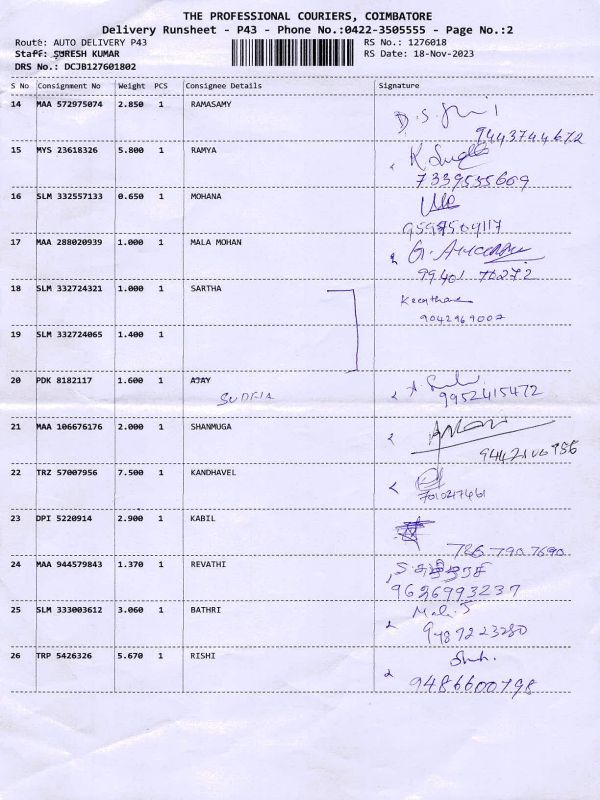 THE PROFESSIONAL COURIERS, COIMBATORE
Delivery Runsheet - P43 - Phone No.:0422-3505555 - Page No.:2
Route: AUTO DELIVERY P43 RS No.: 1276018
Staff: SURESH KUMAR RS Date: 18-Nov-2023
DRS No.: DCJB127601802
S No Consignment No Weight PCS Consignee Details Signature
14 MAA 572975074 2.850 1 RAMASAMY
9443744672
15 MYS 23618326 5.800 1 RAMYA
7339555609
16 SLM 332557133 0.650 1 MOHANA
17 MAA 288020939 1.000 1 MALA MOHAN
18 SLM 332724321 1.000 1 SARTHA
9042969007
19 SLM 332724065 1.400 1
20 PDK 8182117 1.600 1 AJAY
9952415472
21 MAA 106676176 2.000 1 SHANMUGA
22 TRZ 57007956 7.500 1 KANDHAVEL
23 DPI 5220914 2.900 1 KABIL
786 790 7690
24 MAA 944579843 1.370 1 REVATHI
9626993237
25 SLM 333003612 3.060 1 BATHRI
9487223280
26 TRP 5426326 5.670 1 RISHI
9486600798